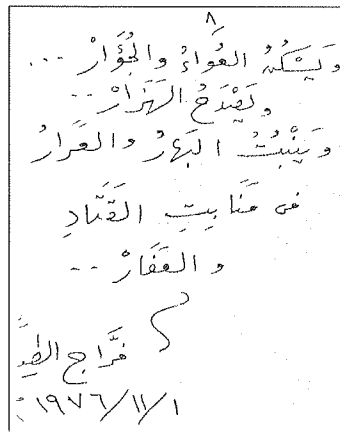 ٨
ويَسْكُنُ العُواءُ والجُؤَارْ ...
ويَصْدَحُ الهَزَارْ ..
ويَنْبُتُ البَهارُ والعَرارُ
في مَنَابِتِ القَتَادِ
والقَفَارْ ..
فرَّاج
١٩٧٦/١١/١